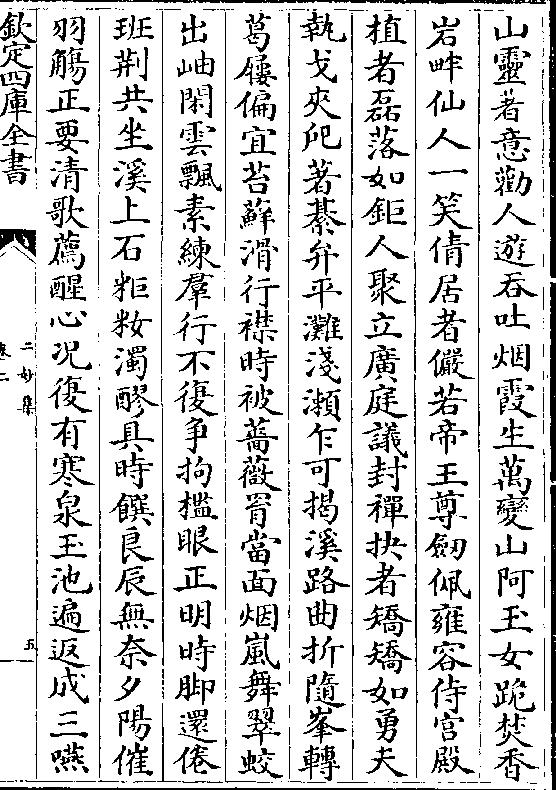 山靈著意勸人遊吞吐烟霞生萬變山阿玉女跪焚香
岩畔仙人一笑倩居者儼若帝王尊劒佩雍容侍宫殿
植者磊落如鉅人聚立廣庭議封禪抉者矯矯如勇夫
執戈夾戺著綦弁平灘淺瀬乍可揭溪路曲折隨峯轉
葛屨偏宜苔蘚滑行襟時被薔薇罥當面烟嵐舞翠蛟
出岫閑雲飄素練羣行不復争拘檻眼正明時脚還倦
班荆共坐溪上石粔籹濁醪具時饌良辰無奈夕陽催
羽觴正要清歌薦醒心况復有寒泉玉池遍返成三嚥
欽定四庫全書
二妙集
卷二
五